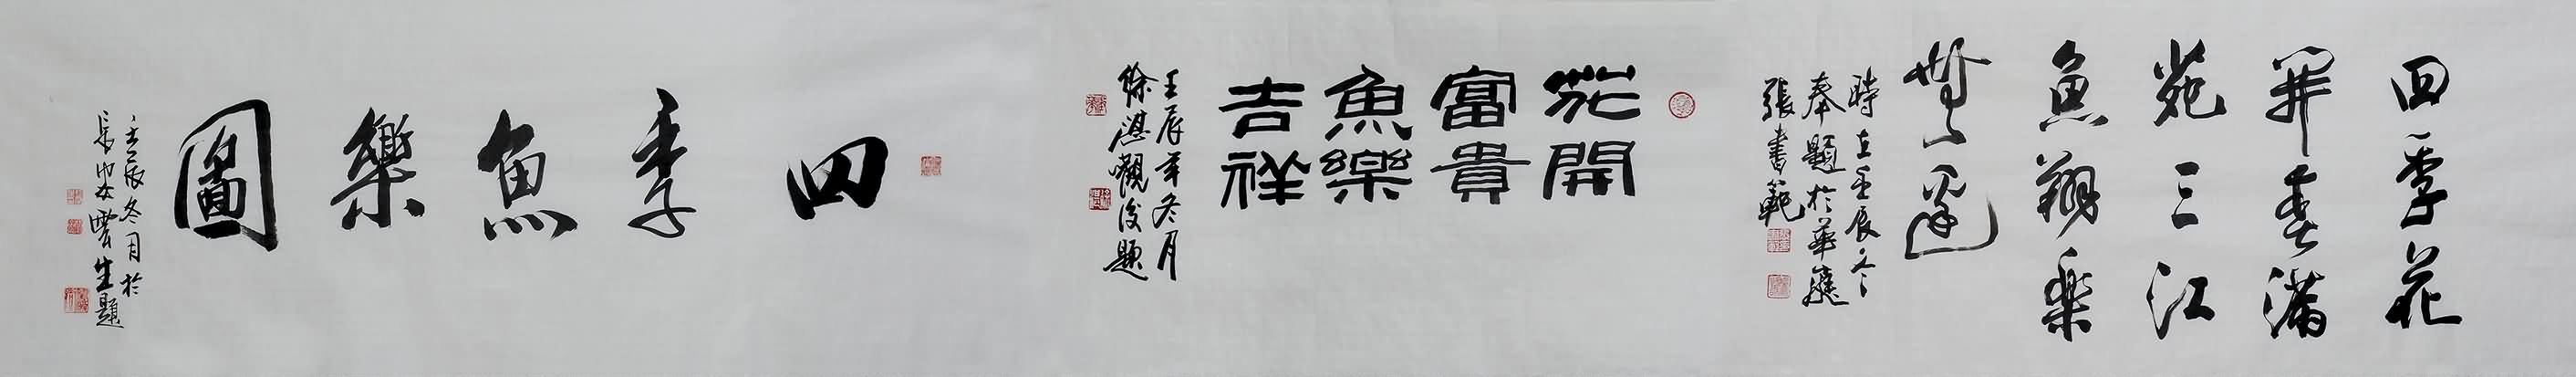 四季花
開春滿
苑三江
魚翔樂
無邊
時在壬辰冬
奉題於華隆
張書範
花開
富貴
魚樂
吉祥
壬辰年冬月
徐湛觀後題
四季魚樂圖
壬辰冬月於
長安雲生題